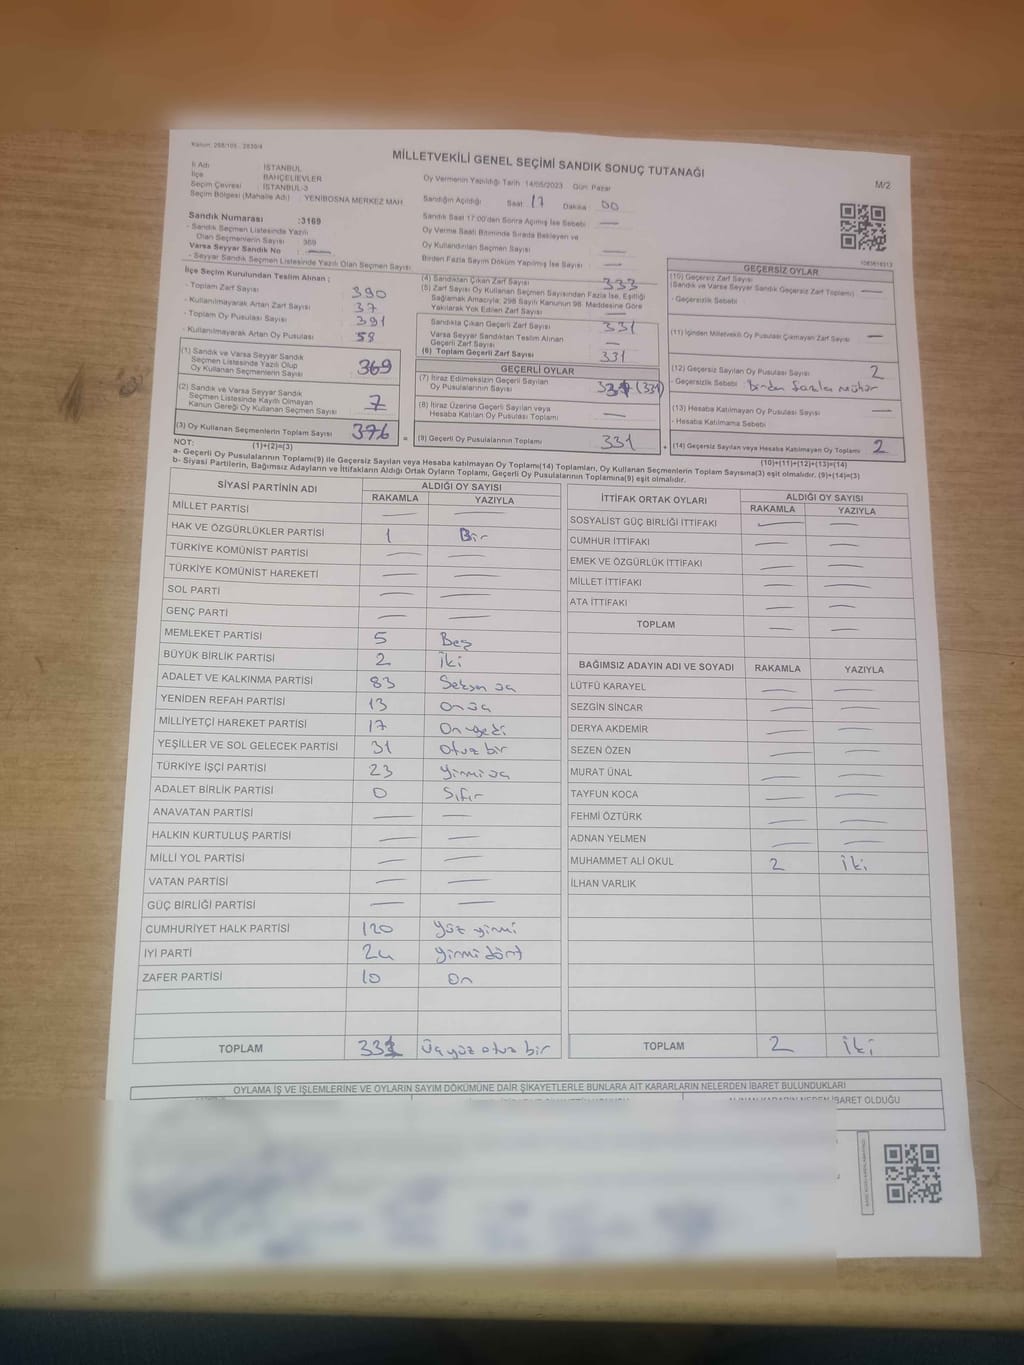 Kanun: 298/105 , 2839/4
MİLLETVEKİLİ GENEL SEÇİMİ SANDIK SONUÇ TUTANAĞI
M/2
İl Adı : İSTANBUL
İlçe : BAHÇELİEVLER
Seçim Çevresi : İSTANBUL-3
Seçim Bölgesi (Mahalle Adı) : YENİBOSNA MERKEZ MAH.
Sandık Numarası :3169
- Sandık Seçmen Listesinde Yazılı
Olan Seçmenlerin Sayısı : 369
Varsa Seyyar Sandık No : —
- Seyyar Sandık Seçmen Listesinde Yazılı Olan Seçmen Sayısı:
Oy Vermenin Yapıldığı Tarih :14/05/2023 Gün: Pazar
Sandığın Açıldığı Saat : 17 Dakika : 00
Sandık Saat 17:00'den Sonra Açılmış İse Sebebi : —
Oy Verme Saati Bitiminde Sırada Bekleyen ve
Oy Kullandırılan Seçmen Sayısı : —
Birden Fazla Sayım Döküm Yapılmış İse Sayısı : —
İlçe Seçim Kurulundan Teslim Alınan ;
- Toplam Zarf Sayısı : 390
- Kullanılmayarak Artan Zarf Sayısı : 37
- Toplam Oy Pusulası Sayısı : 391
- Kullanılmayarak Artan Oy Pusulası : 58
(1) Sandık ve Varsa Seyyar Sandık
Seçmen Listesinde Yazılı Olup
Oy Kullanan Seçmenlerin Sayısı : 369
(2) Sandık ve Varsa Seyyar Sandık
Seçmen Listesinde Kayıtlı Olmayan
Kanun Gereği Oy Kullanan Seçmen Sayısı : 7
(3) Oy Kullanan Seçmenlerin Toplam Sayısı : 376
(4) Sandıktan Çıkan Zarf Sayısı : 333
(5) Zarf Sayısı Oy Kullanan Seçmen Sayısından Fazla İse, Eşitliği
Sağlamak Amacıyla; 298 Sayılı Kanunun 98. Maddesine Göre
Yakılarak Yok Edilen Zarf Sayısı : —
Sandıkta Çıkan Geçerli Zarf Sayısı : 331
Varsa Seyyar Sandıktan Teslim Alınan
Geçerli Zarf Sayısı : —
(6) Toplam Geçerli Zarf Sayısı : 331
GEÇERLİ OYLAR
(7) İtiraz Edilmeksizin Geçerli Sayılan
Oy Pusulalarının Sayısı : 331 (331)
(8) İtiraz Üzerine Geçerli Sayılan veya
Hesaba Katılan Oy Pusulası Toplamı : —
(9) Geçerli Oy Pusulalarının Toplamı : 331
GEÇERSİZ OYLAR
(10) Geçersiz Zarf Sayısı
(Sandık ve Varsa Seyyar Sandık Geçersiz Zarf Toplamı) : —
- Geçersizlik Sebebi :
(11) İçinden Milletvekili Oy Pusulası Çıkmayan Zarf Sayısı : —
(12) Geçersiz Sayılan Oy Pusulası Sayısı : 2
- Geçersizlik Sebebi : birden fazla mühür
(13) Hesaba Katılmayan Oy Pusulası Sayısı : —
- Hesaba Katılmama Sebebi :
(14) Geçersiz Sayılan veya Hesaba Katılmayan Oy Toplamı : 2
NOT: (1)+(2)=(3) (10)+(11)+(12)+(13)=(14)
a- Geçerli Oy Pusulalarının Toplamı(9) ile Geçersiz Sayılan veya Hesaba katılmayan Oy Toplamı(14) Toplamları, Oy Kullanan Seçmenlerin Toplam Sayısına(3) eşit olmalıdır. (9)+(14)=(3)
b- Siyasi Partilerin, Bağımsız Adayların ve İttifakların Aldığı Ortak Oyların Toplamı, Geçerli Oy Pusulalarının Toplamına(9) eşit olmalıdır.
SİYASİ PARTİNİN ADI ALDIĞI OY SAYISI
RAKAMLA YAZIYLA
MİLLET PARTİSİ — —
HAK VE ÖZGÜRLÜKLER PARTİSİ 1 Bir
TÜRKİYE KOMÜNİST PARTİSİ — —
TÜRKİYE KOMÜNİST HAREKETİ — —
SOL PARTİ — —
GENÇ PARTİ — —
MEMLEKET PARTİSİ 5 Beş
BÜYÜK BİRLİK PARTİSİ 2 İki
ADALET VE KALKINMA PARTİSİ 83 Seksen üç
YENİDEN REFAH PARTİSİ 13 on üç
MİLLİYETÇİ HAREKET PARTİSİ 17 On yedi
YEŞİLLER VE SOL GELECEK PARTİSİ 31 otuz bir
TÜRKİYE İŞÇİ PARTİSİ 23 yirmi üç
ADALET BİRLİK PARTİSİ 0 Sıfır
ANAVATAN PARTİSİ — —
HALKIN KURTULUŞ PARTİSİ — —
MİLLİ YOL PARTİSİ — —
VATAN PARTİSİ — —
GÜÇ BİRLİĞİ PARTİSİ — —
CUMHURİYET HALK PARTİSİ 120 yüz yirmi
İYİ PARTİ 24 yirmi dört
ZAFER PARTİSİ 10 On
TOPLAM 331 üç yüz otuz bir
İTTİFAK ORTAK OYLARI ALDIĞI OY SAYISI
RAKAMLA YAZIYLA
SOSYALİST GÜÇ BİRLİĞİ İTTİFAKI — —
CUMHUR İTTİFAKI — —
EMEK VE ÖZGÜRLÜK İTTİFAKI — —
MİLLET İTTİFAKI — —
ATA İTTİFAKI — —
TOPLAM — —
BAĞIMSIZ ADAYIN ADI VE SOYADI RAKAMLA YAZIYLA
LÜTFÜ KARAYEL — —
SEZGİN SİNCAR — —
DERYA AKDEMİR — —
SEZEN ÖZEN — —
MURAT ÜNAL — —
TAYFUN KOCA — —
FEHMİ ÖZTÜRK — —
ADNAN YELMEN — —
MUHAMMET ALİ OKUL 2 İki
İLHAN VARLIK
TOPLAM 2 İki
OYLAMA İŞ VE İŞLEMLERİNE VE OYLARIN SAYIM DÖKÜMÜNE DAİR ŞİKAYETLERLE BUNLARA AİT KARARLARIN NELERDEN İBARET BULUNDUKLARI
ALINAN KARARIN NEDEN İBARET OLDUĞU